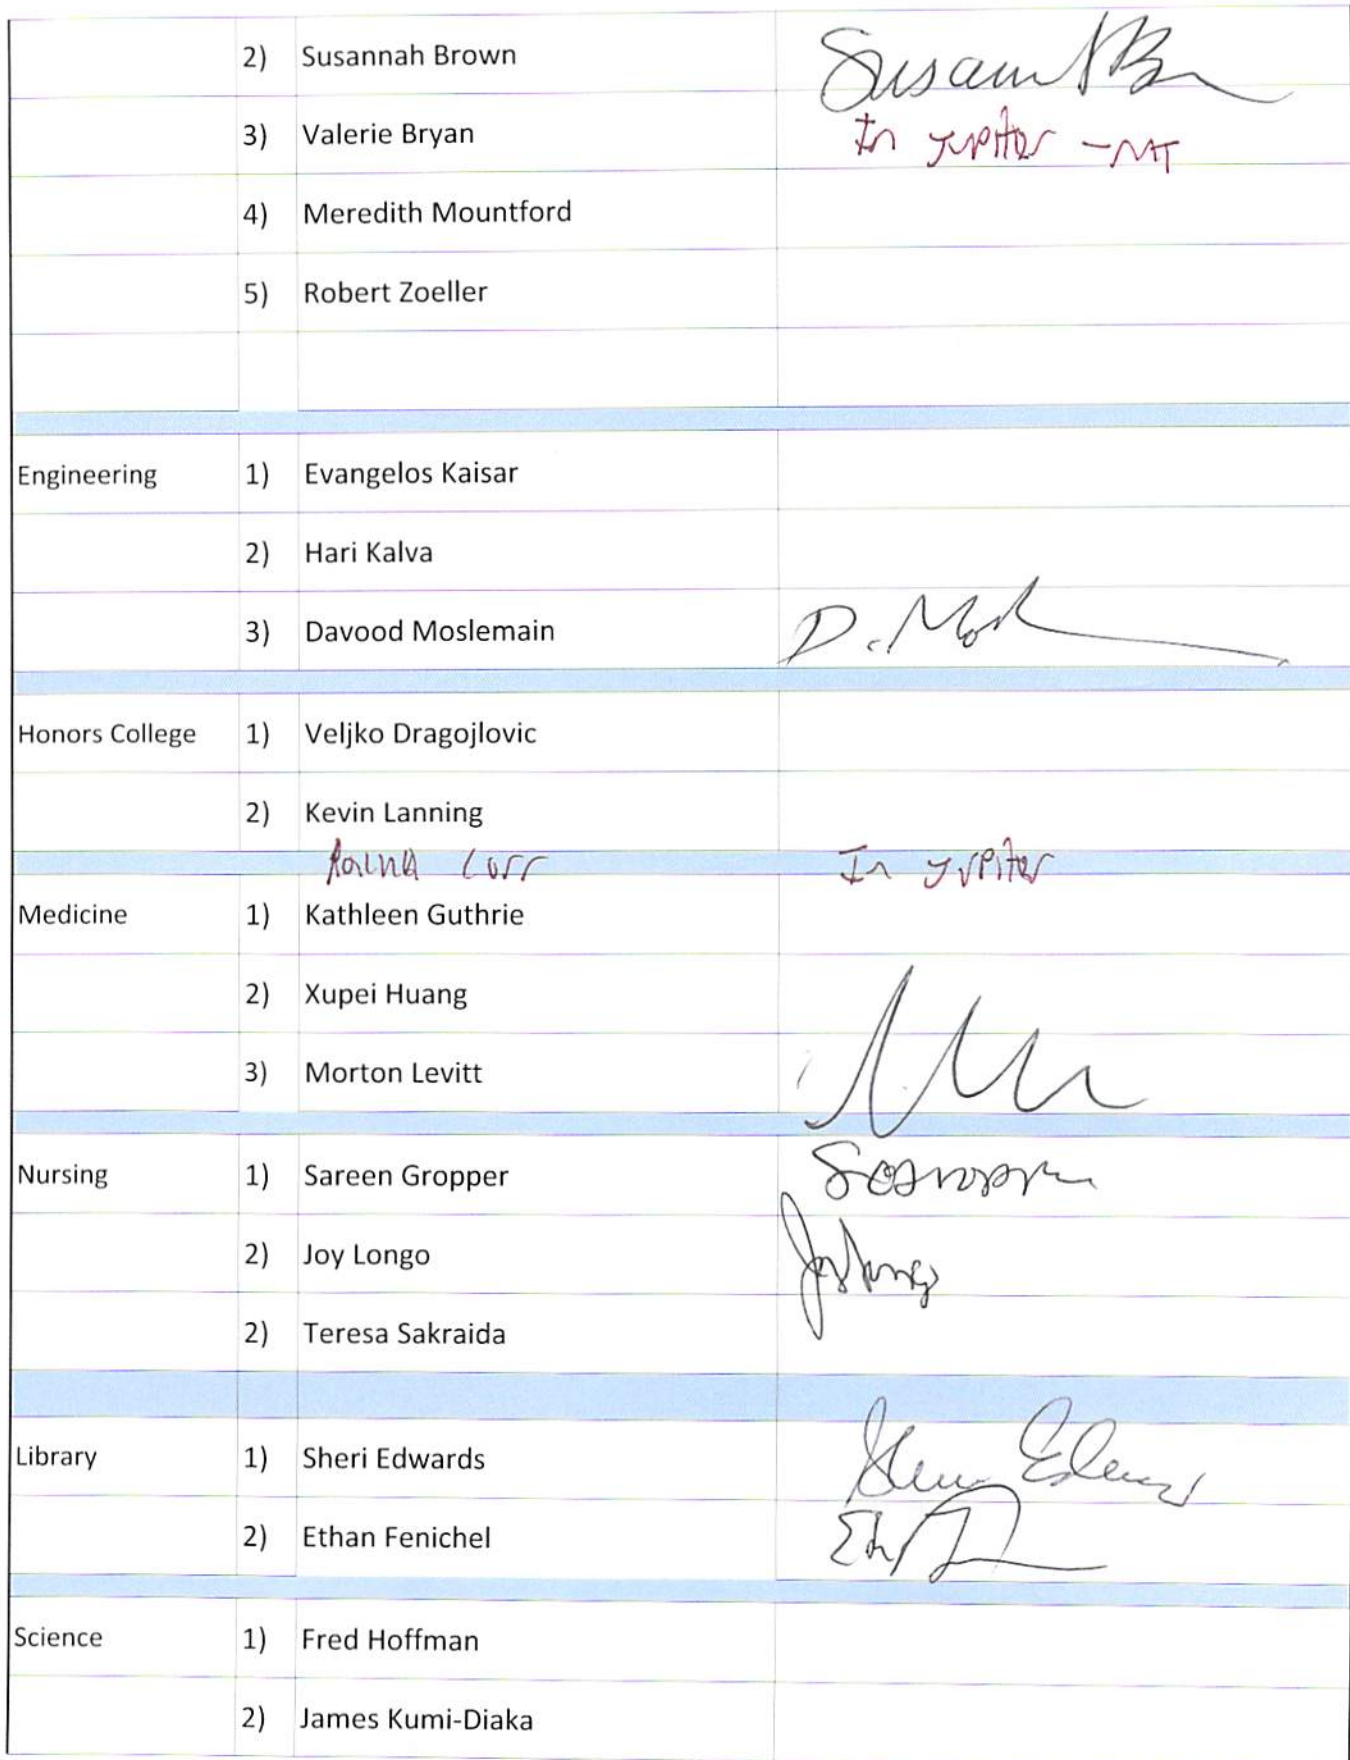 2) Susannah Brown
3) Valerie Bryan In Jupiter -MT
4) Meredith Mountford
5) Robert Zoeller
Engineering 1) Evangelos Kaisar
2) Hari Kalva
3) Davood Moslemain D.
Honors College 1) Veljko Dragojlovic
2) Kevin Lanning
In Jupiter
Medicine 1) Kathleen Guthrie
2) Xupei Huang
3) Morton Levitt
Nursing 1) Sareen Gropper
2) Joy Longo
2) Teresa Sakraida
Library 1) Sheri Edwards
2) Ethan Fenichel
Science 1) Fred Hoffman
2) James Kumi-Diaka